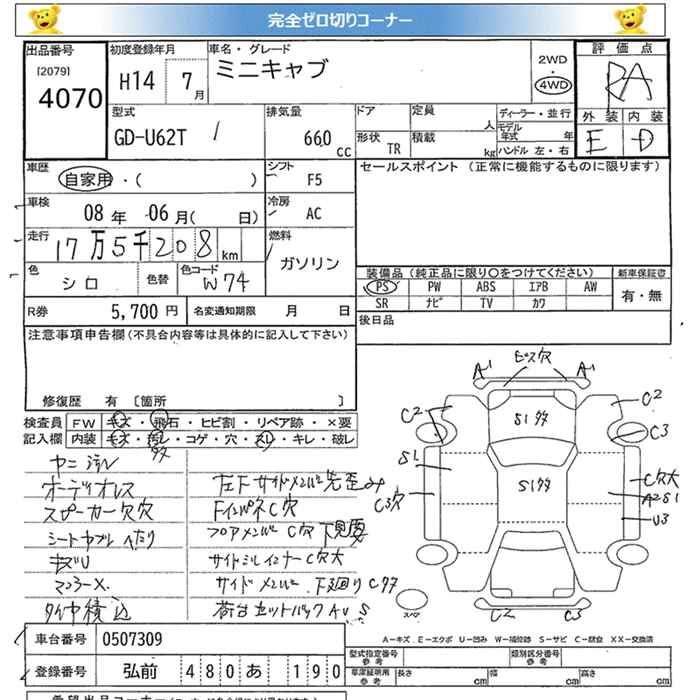 完全ゼロ切りコーナー
出品番号 初度登録年月 車名・グレード 評価点
[2079] 4070 H14 7月 ミニキャブ 2WD 4WD RA
型式 排気量 ドア 定員 人 ディーラー・並行 外装 内装
GD-U62T 660 CC 形状 TR 積載 kg モデル年式 年 ハンドル 左・右 E D
車歴 シフト セールスポイント (正常に機能するものに限ります)
自家用・( ) F5
車検 冷房
08年 06月( 日) AC
走行 燃料
17万5千208km ガソリン
色 シロ 色替 色コード W74
装備品(純正品に限り○をつけてください) 新車保証書
PS PW ABS エアB AW 有・無
SR ナビ TV カワ
R券 5,700円 名変通知期限 月 日 後日品
注意事項申告欄(不具合内容等は具体的に記入して下さい)
修復歴 有 [箇所 ]
検査員 FW キズ・飛石・ヒビ割・リペア跡・×要
記入欄 内装 キズ・汚レ・コゲ・穴・スレ・キレ・破レ
多
ヤニ汚レ
オーディオレス
スピーカー欠穴
シートヤブレ へたり
キズU
マフラーX
タイヤ積込
左F サイドメンバー先歪み
Fインパネ C穴
フロアメンバー C穴 下見要
サイドシルインナー C穴大
サイドメンバー 下廻りC多
荷台セットバックAU S
A1 ビス穴 A1
C2 S1多 C2
C3
S1 S1多 C穴大
C3穴 A2S1
U3
スペア C2 C3
A-キズ E-エクボ U-凹み W-補修跡 S-サビ C-腐食 XX-交換済
車台番号 0507309
登録番号 弘前 480 あ 190
型式指定番号 参考 類別区分番号 参考
車庫証明用 参考 長さ cm 幅 cm 高さ cm